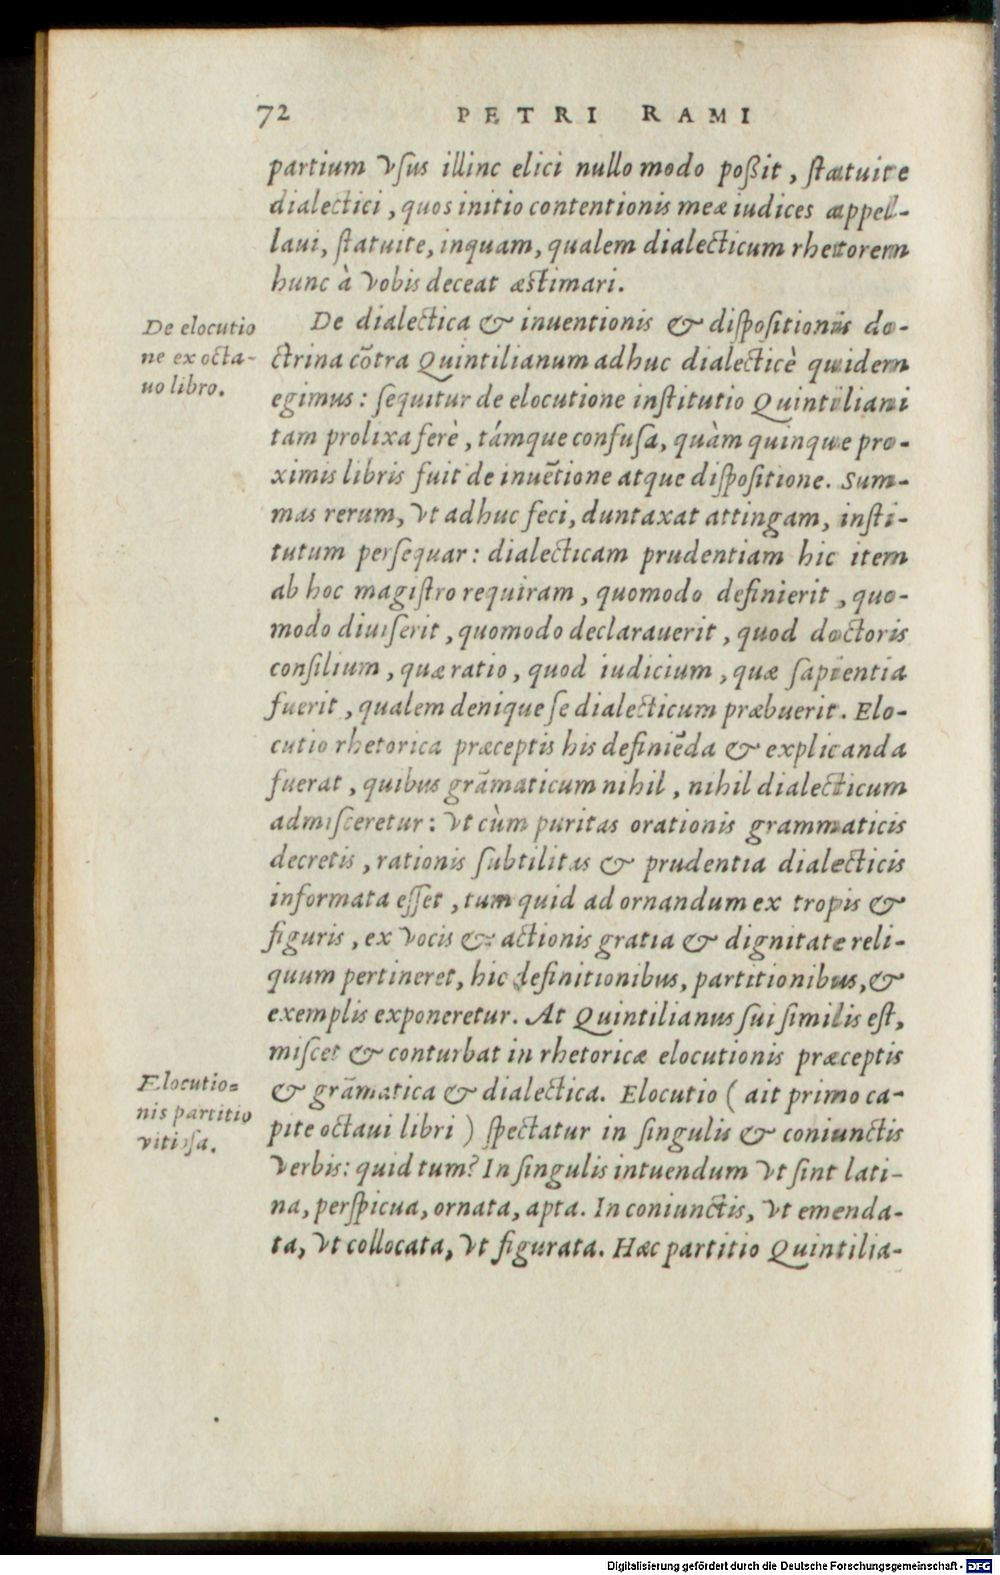 72 PETRI RAMI
partium vsus illinc elici nullo modo poßit, statuite
dialectici, quos initio contentionis meæ iudices appel-
laui, statuite, inquam, qualem dialecticum rhetorem
hunc à vobis deceat æstimari.
De elocutio
ne ex octa-
uo libro.
De dialectica & inuentionis & dispositionis do-
ctrina cõtra Quintilianum adhuc dialecticè quidem
egimus: sequitur de elocutione institutio Quintiliani
tam prolixa ferè, támque confusa, quàm quinque pro-
ximis libris fuit de inuẽtione atque dispositione. Sum-
mas rerum, vt adhuc feci, duntaxat attingam, insti-
tutum persequar: dialecticam prudentiam hic item
ab hoc magistro requiram, quomodo definierit, quo-
modo diuiserit, quomodo declarauerit, quod doctoris
consilium, quæ ratio, quod iudicium, quæ sapientia
fuerit, qualem denique se dialecticum præbuerit. Elo-
cutio rhetorica præceptis his definiẽda & explicanda
fuerat, quibus grãmaticum nihil, nihil dialecticum
admisceretur: vt cùm puritas orationis grammaticis
decretis, rationis subtilitas & prudentia dialecticis
informata esset, tum quid ad ornandum ex tropis &
figuris, ex vocis & actionis gratia & dignitate reli-
quum pertineret, hic definitionibus, partitionibus, &
exemplis exponeretur. At Quintilianus sui similis est,
miscet & conturbat in rhetoricæ elocutionis præceptis
Elocutio=
nis partitio
vitiosa.
& grãmatica & dialectica. Elocutio ( ait primo ca-
pite octaui libri ) spectatur in singulis & coniunctis
verbis: quid tum? In singulis intuendum vt sint lati-
na, perspicua, ornata, apta. In coniunctis, vt emenda-
ta, vt collocata, vt figurata. Hæc partitio Quintilia-
Digitalisierung gefördert durch die Deutsche Forschungsgemeinschaft - DFG